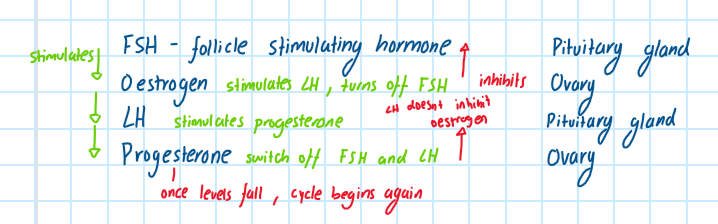 FSH - follicle stimulating hormone Pituitary gland
stimulates
Oestrogen stimulates LH, turns off FSH inhibits Ovary
LH doesnt inhibit
oestrogen
LH stimulates progesterone Pituitary gland
Progesterone switch off FSH and LH Ovary
once levels fall, cycle begins again